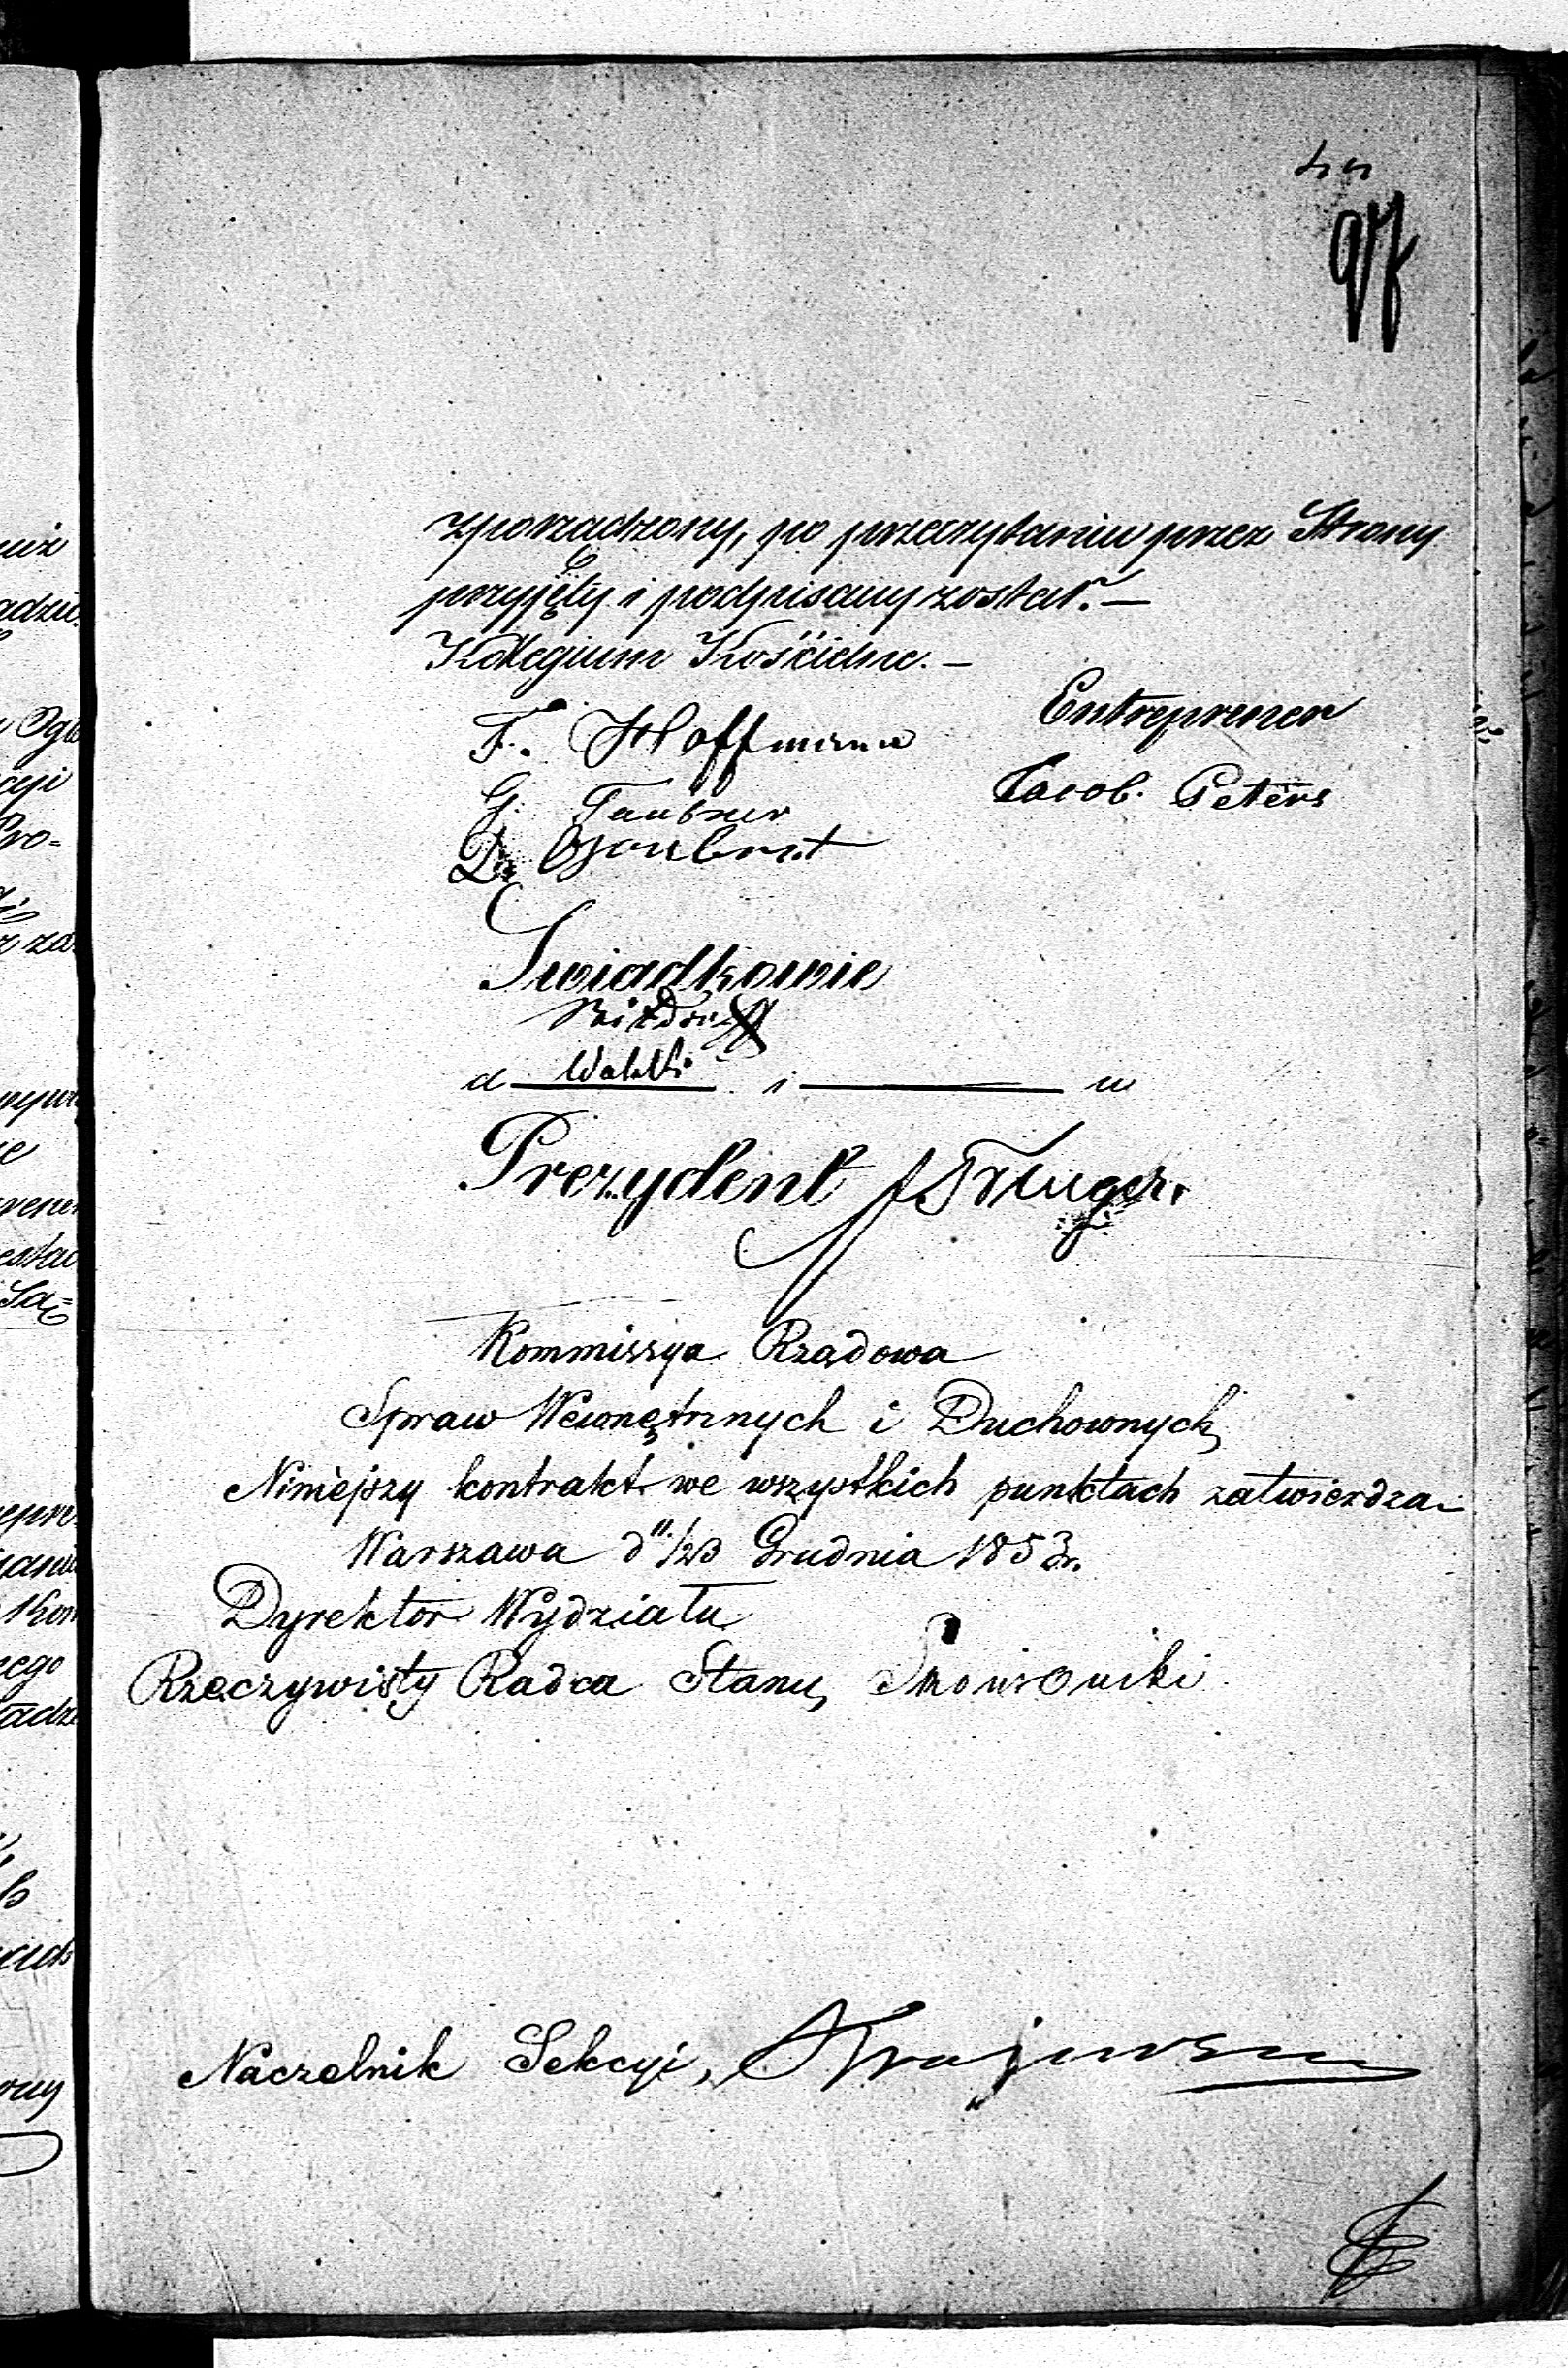 97
zporządzony, po przeczytaniu przez Strony
przyjęty i podpisany został. —
Kollegium Kościelne. —
Entreprener
F. Hoffmann
Jacob. Peters
G. Taubner
D.
Swiadkowie
a i w
Prezydent Traeger.
Kommissya Rządowa
Spraw Wewnętrznych i Duchownych,
Niniejszy kontrakt we wszystkich punktach zatwierdza
Warszawa d 11/23 Grudnia 1853 r.
Dyrektor Wydziału
Rzeczywisty Radca Stanu,
Naczelnik Sekcyi, Krajewski